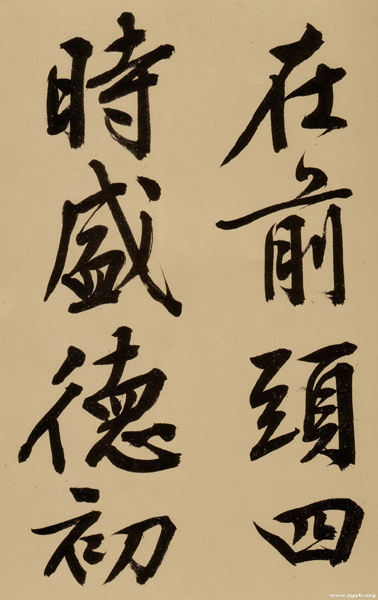 在前頭四
時盛德初
www.zgyb.org